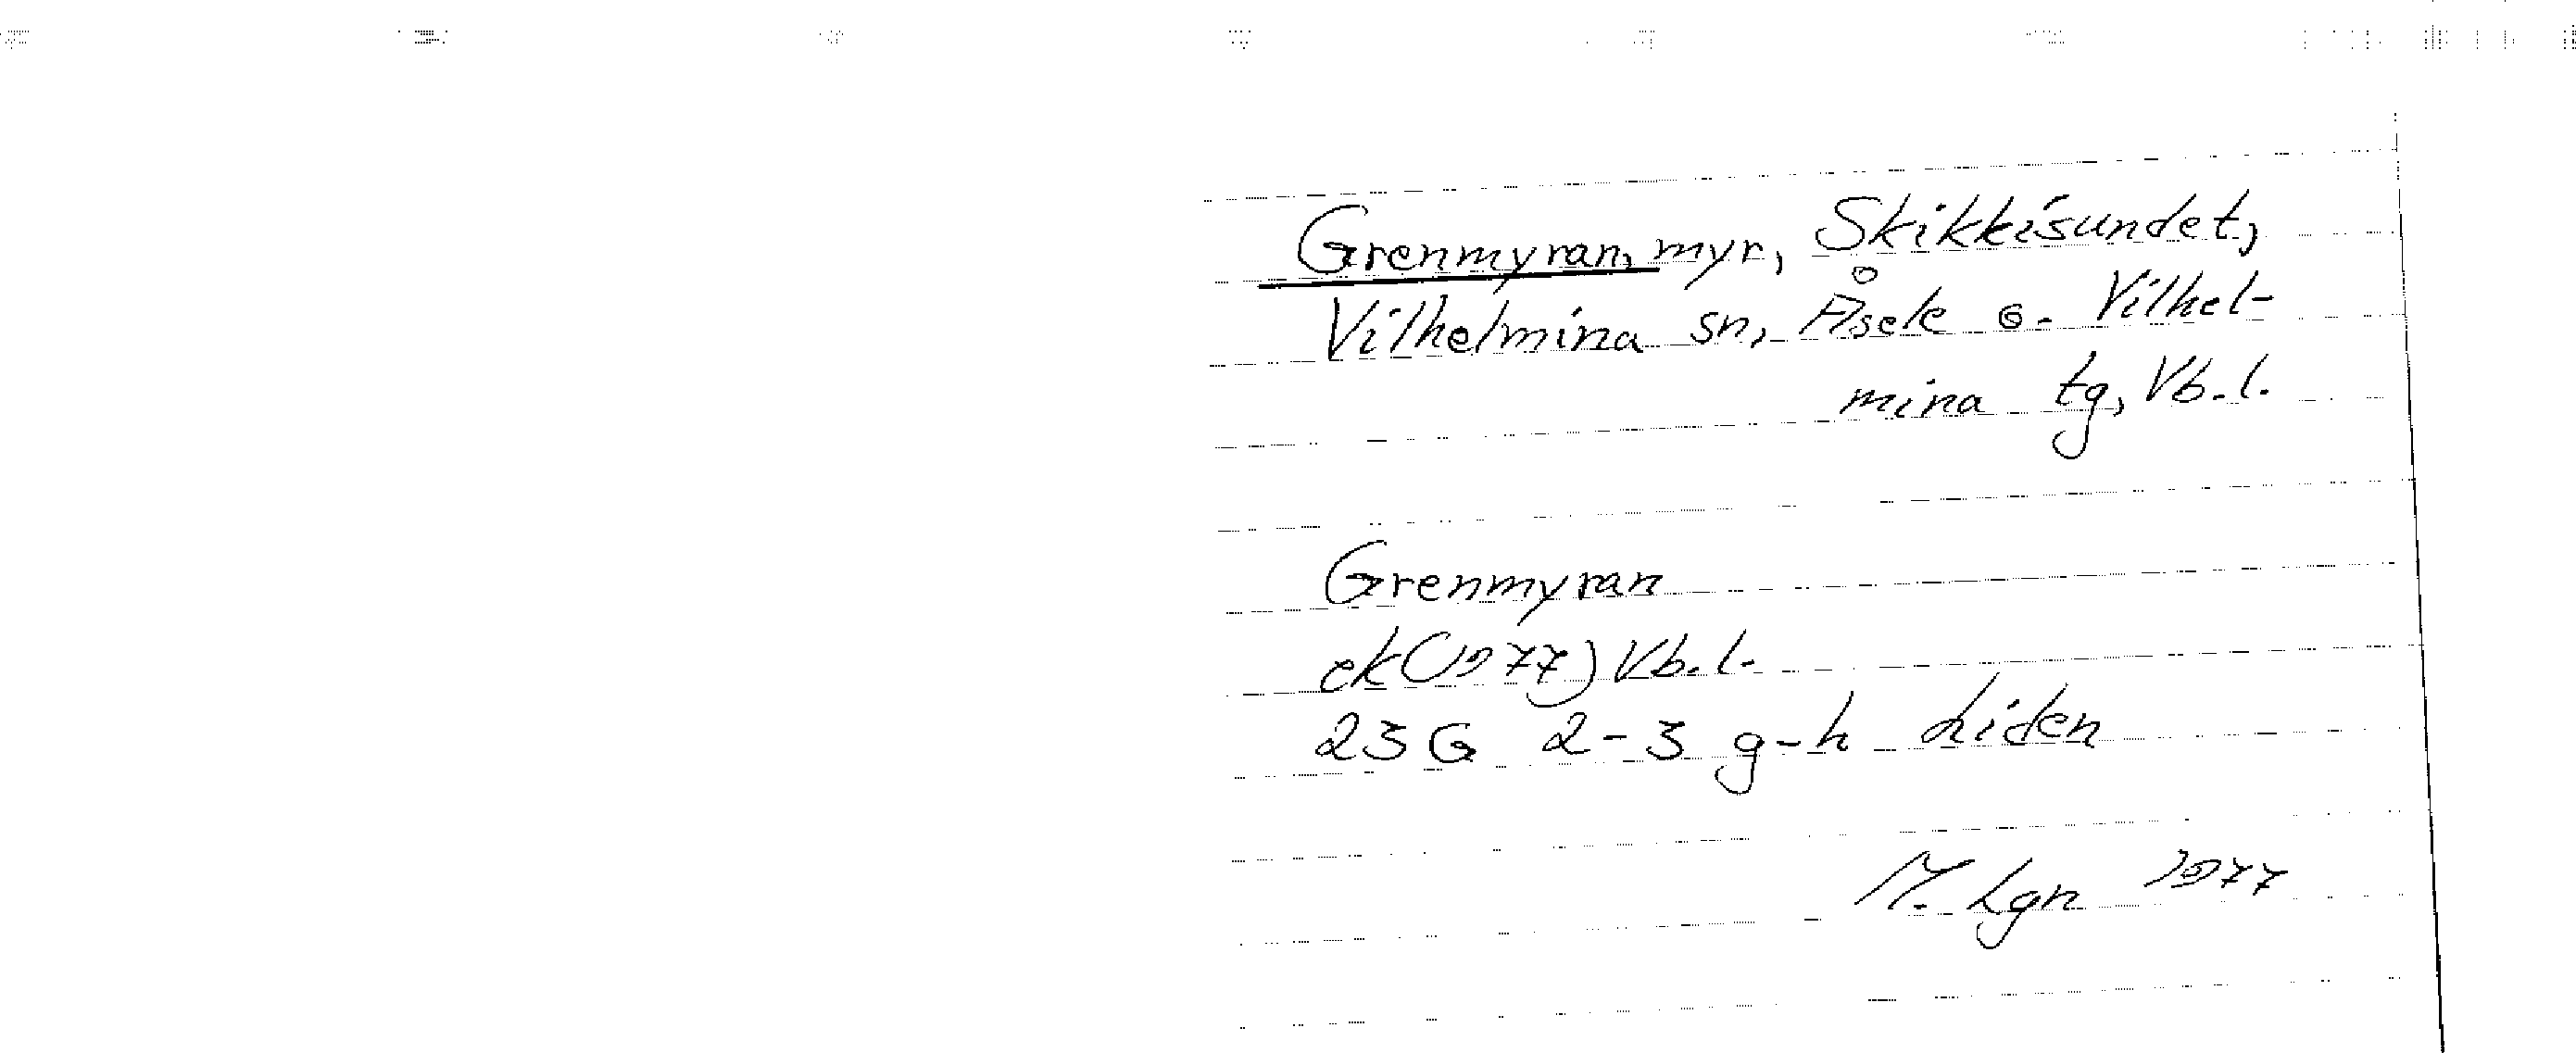 Grenmyran, myr, Skikkisundet,
Vilhelmina sn, Åsele o. Vilhel-
mina tg, Vb.l.
Grenmyran
ek (1977) Vb.l.
23 G 2-3 g-h Liden
M. Lgn 1977